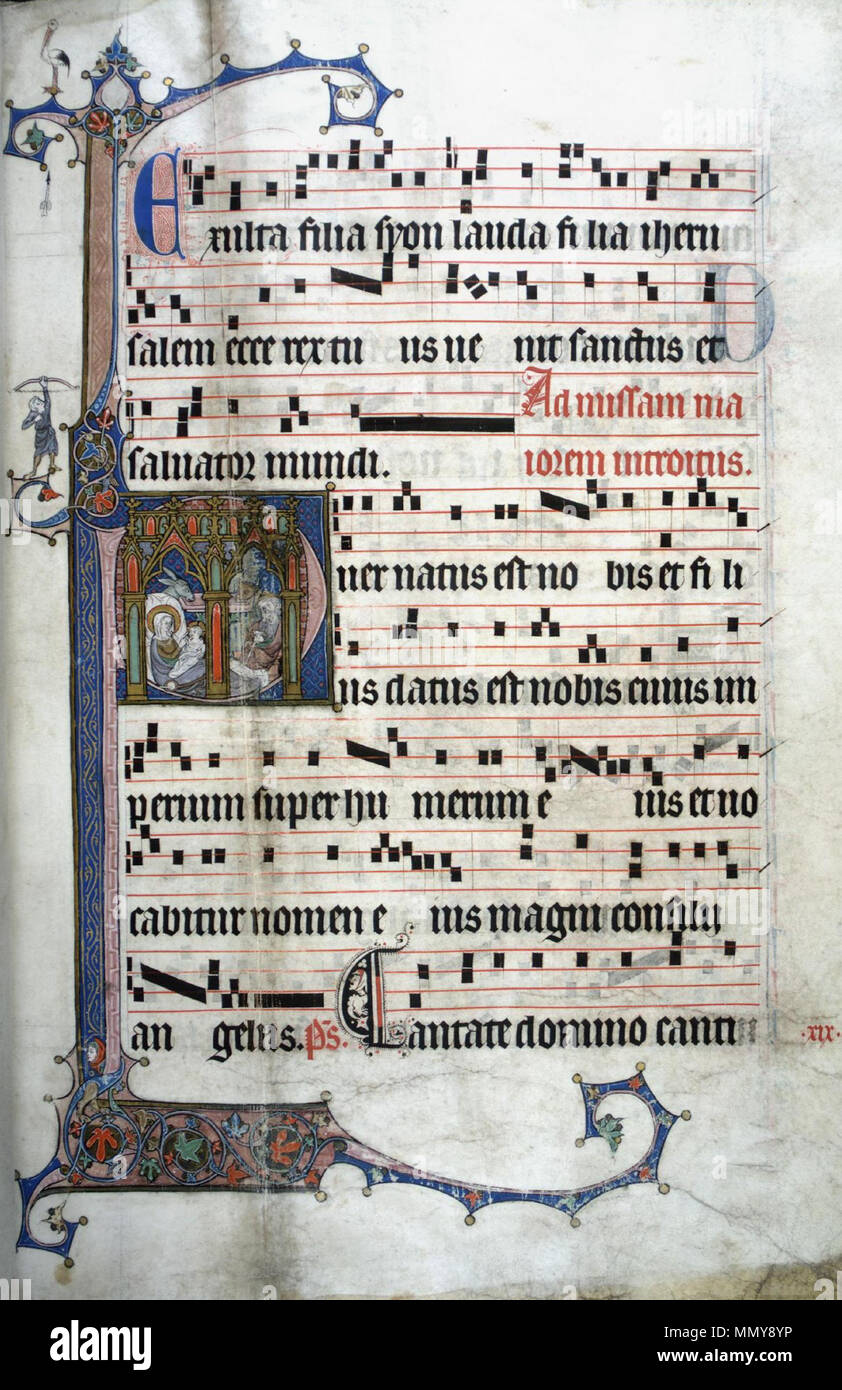 Exulta filia syon lauda filia iheru
salem ecce rex tuus uenit sanctus et
saluator mundi. Ad missam ma
iorem introitus.
Puer natus est nobis et fili
us datus est nobis cuius im
perium super humerum eius et uo
cabitur nomen eius magni consilij
angelus. ps. Cantate domino canti
·xix·
alamy
Image ID: MMY8YP
www.alamy.com